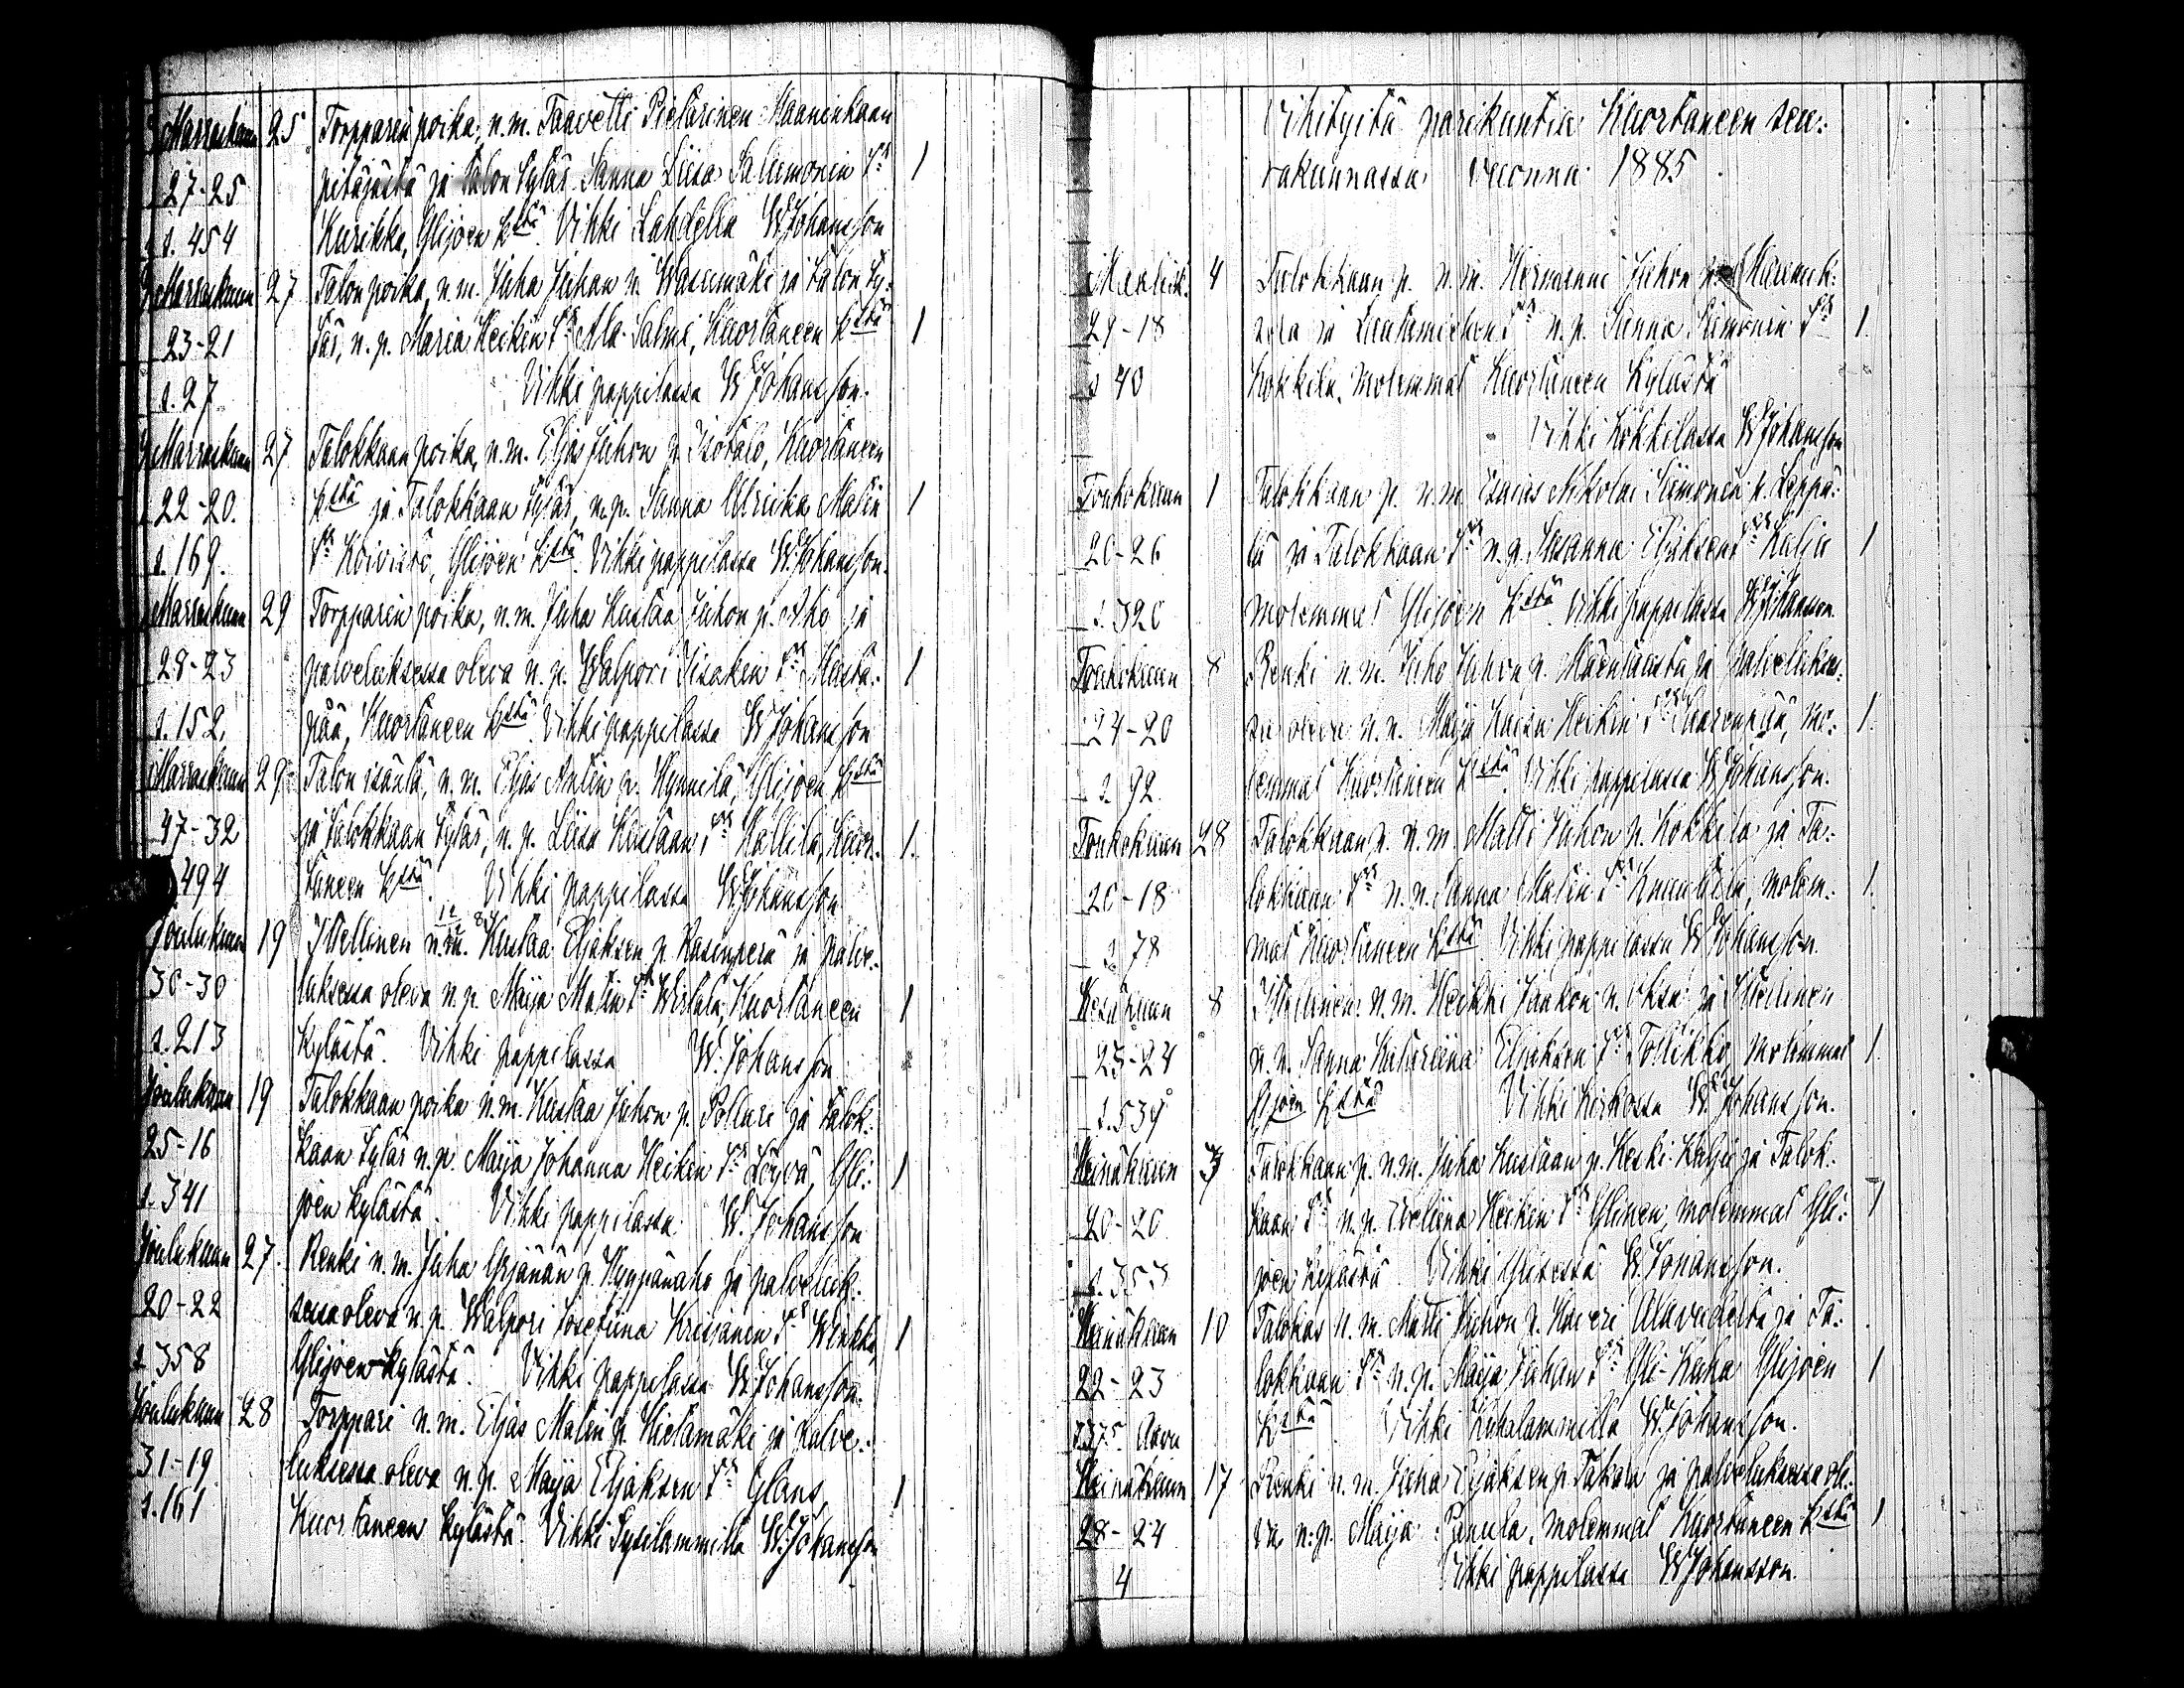 Marraskuun 25 Torpparin poika, n.m. Taavetti Pietarinen Maaninkaan
27-25 pitäjästä ja talon tytär Sanna Liisa Salumonin Tr 1
s. 454 Kurikka, Ylijoen kstä. Vihki Lahdella W Johansson
Marraskuun 27 Talon poika, n.m. Juha Juhan p. Wasumäki ja talon ty-
23-21 tär, n.p. Maria Heikin Tr Ala-Salmi, Kuortaneen kstä 1
s. 27 Vihki pappilassa W Johansson.
Marraskuun 27 Talokkaan poika, n.m. Eljas Juhon p. Isotalo, Kuortaneen
22-20. kstä ja Talokkaan tytär, n.p. Sanna Ulriika Matin 1
s. 169. Tr Koivisto, Ylijoen kstä. Vihki pappilassa W. Johansson.
Marraskuun 29 Torpparin poika, n.m. Juha Kustaa Juhon p. Aho ja
28-23 palveluksessa oleva n.p. Walpori Iisakin Tr Musta- 1
s. 152. pää, Kuortaneen kstä. Vihki pappilassa W Johansson
Marraskuun 29 Talon isäntä, n.m. Eljas Antin p. Hynnilä, Ylijoen kstä
47-32 ja Talokkaan tytär, n.p. Liisa Kustaan Tr Kallila, Kuor- 1.
494 taneen kstä. Vihki pappilassa W Johansson
Joulukuun 19 Itsellinen n.m. Kustaa Eljaksen p. Kasinperä ja palve-
30-30 luksessa oleva n.p. Maija Matin Tr Wirtala, Kuortaneen 1
s. 213 kylästä. Vihki pappilassa W. Johansson
Joulukuun 19 Talokkaan poika n.m. Kustaa Juhon p. Pollari ja Talok-
25-16 kaan tytär n.p. Maija Johanna Heikin Tr Löyvä, Yli- 1
s. 341 joen kylästä. Vihki pappilassa W. Johansson
Joulukuun 27. Renki n.m. Juha Yrjänän p. Hyypänaho ja palveluk-
20-22 sessa oleva n.p. Walpori Josefiina Krissanen Tr Winkki, 1
s. 358 Ylijoen kylästä. Vihki pappilassa W Johansson.
Joulukuun 28 Torppari n.m. Eljas Matin p. Hietamäki ja palve-
31-19 luksessa oleva n.p. Maija Eljaksen Tr Glans, 1
s. 161 Kuortaneen kylästä. Vihki Sysilammilla W. Johansson
Vihityitä parikuntia Kuortaneen seu-
rakunnassa vuonna 1885.
4 Talokkaan p. n.m. Hermanni Juhon
29-18 ja Lautamiehen Tr n.p. Sanna Siimonin Tr 1.
s 40 Kokkila, molemmat Kuortaneen kylästä
Vihki Kokkilassa W Johansson
Toukokuun 1 Talokkaan p. n.m. Esaias Nikolai Siimonin p. Leppä-
20-26 lä ja Talokkaan Tr n.p. Susanna Eljaksen Tr Kalju 1
s. 320 molemmat Ylijoen kstä. Vihki pappilassa W Johansson.
Toukokuun 8 Renki n.m. Juho Juhon p. Mäensausta ja Palveluksес-
24-20 sa oleva n.p. Maija Kaisa Heikin Tr Saarenpää, mo- 1.
s. 92. lemmat Kuortaneen kstä. Vihki pappilassa W Johansson.
Toukokuun 28 Talokkaan p. n.m. Matti Juhon p. Kokkila ja Ta-
20-18 lokkaan Tr n.p. Sanna Matin Tr, molem- 1.
s 78 mat Kuortaneen kstä. Vihki pappilassa W Johansson.
Kesäkuun 8 Itsellinen n.m. Heikki Jaakon p. Oksa ja Itsellinen
23-24 n.p. Sanna Katariina Eljaksen Tr Tossikko, molemmat 1.
s. 534 Ylijoen kstä Vihki kirkossa W. Johansson.
Heinäkuun 3 Talokkaan p. n.m. Juha Kustaan p. Keski-Kalju ja Talok-
20-20 kaan Tr n.p. Eveliina Heikin Tr Ylinen, molemmat Yli- 1
s. 353 joen kylästä. Vihki Ylisessä W. Johansson.
Heinäkuun 10 Talokas n.m. Matti Juhon p. Kaveri Alavudelta ja Ta-
22-23 lokkaan Tr n.p. Maija Juhan Tr Yli-Kuha Ylijoen 1
s 375. Alavu kstä. Vihki Kuhalammilla W. Johansson.
Heinäkuun 17 Renki n.m. Juha Eljaksen p. Takala ja palveluksessa ole-
28-24 va n.p. Maija Panula, molemmat Kuortaneen kstä 1
4 Vihki pappilassa W Johansson.